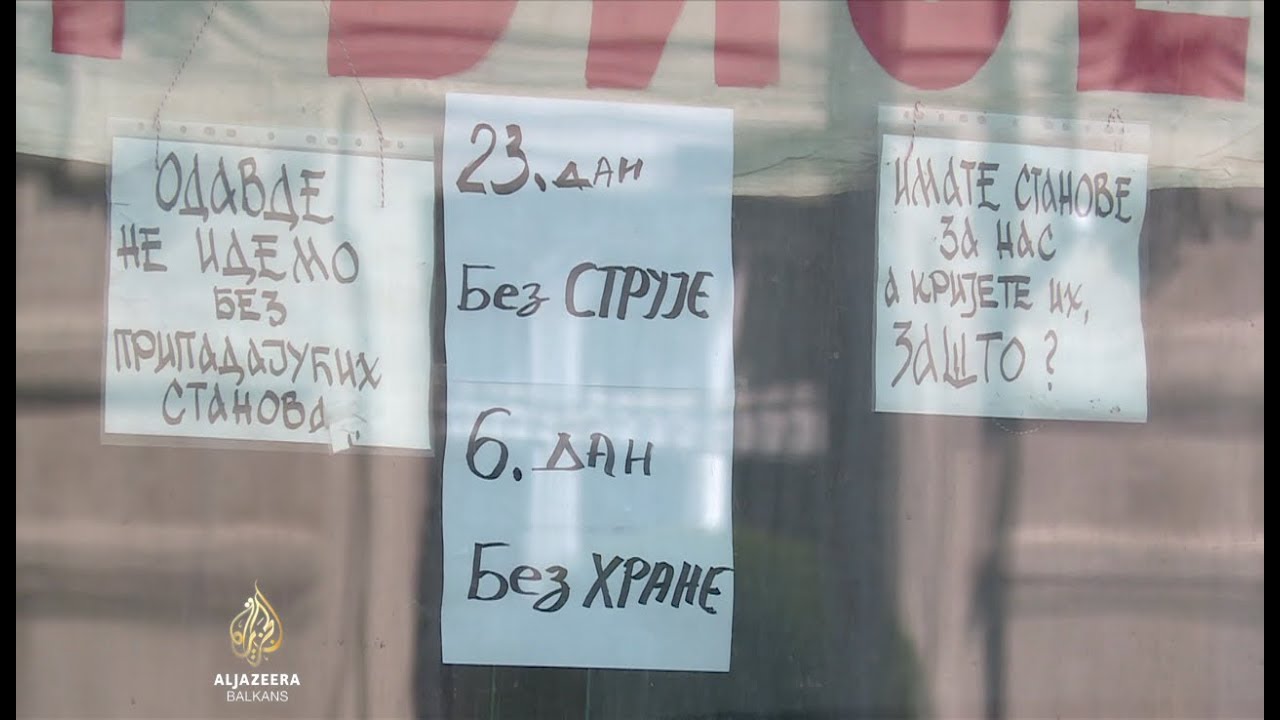 ОДАВДЕ
НЕ ИДЕМО
БЕЗ
ПРИПАДАЈУЋИХ
СТАНОВА
23. ДАН
Без СТРУЈЕ
6. ДАН
Без ХРАНЕ
ИМАТЕ СТАНОВЕ
ЗА НАС
А КРИЈЕТЕ ИХ,
ЗАШТО?
ALJAZEERA
BALKANS